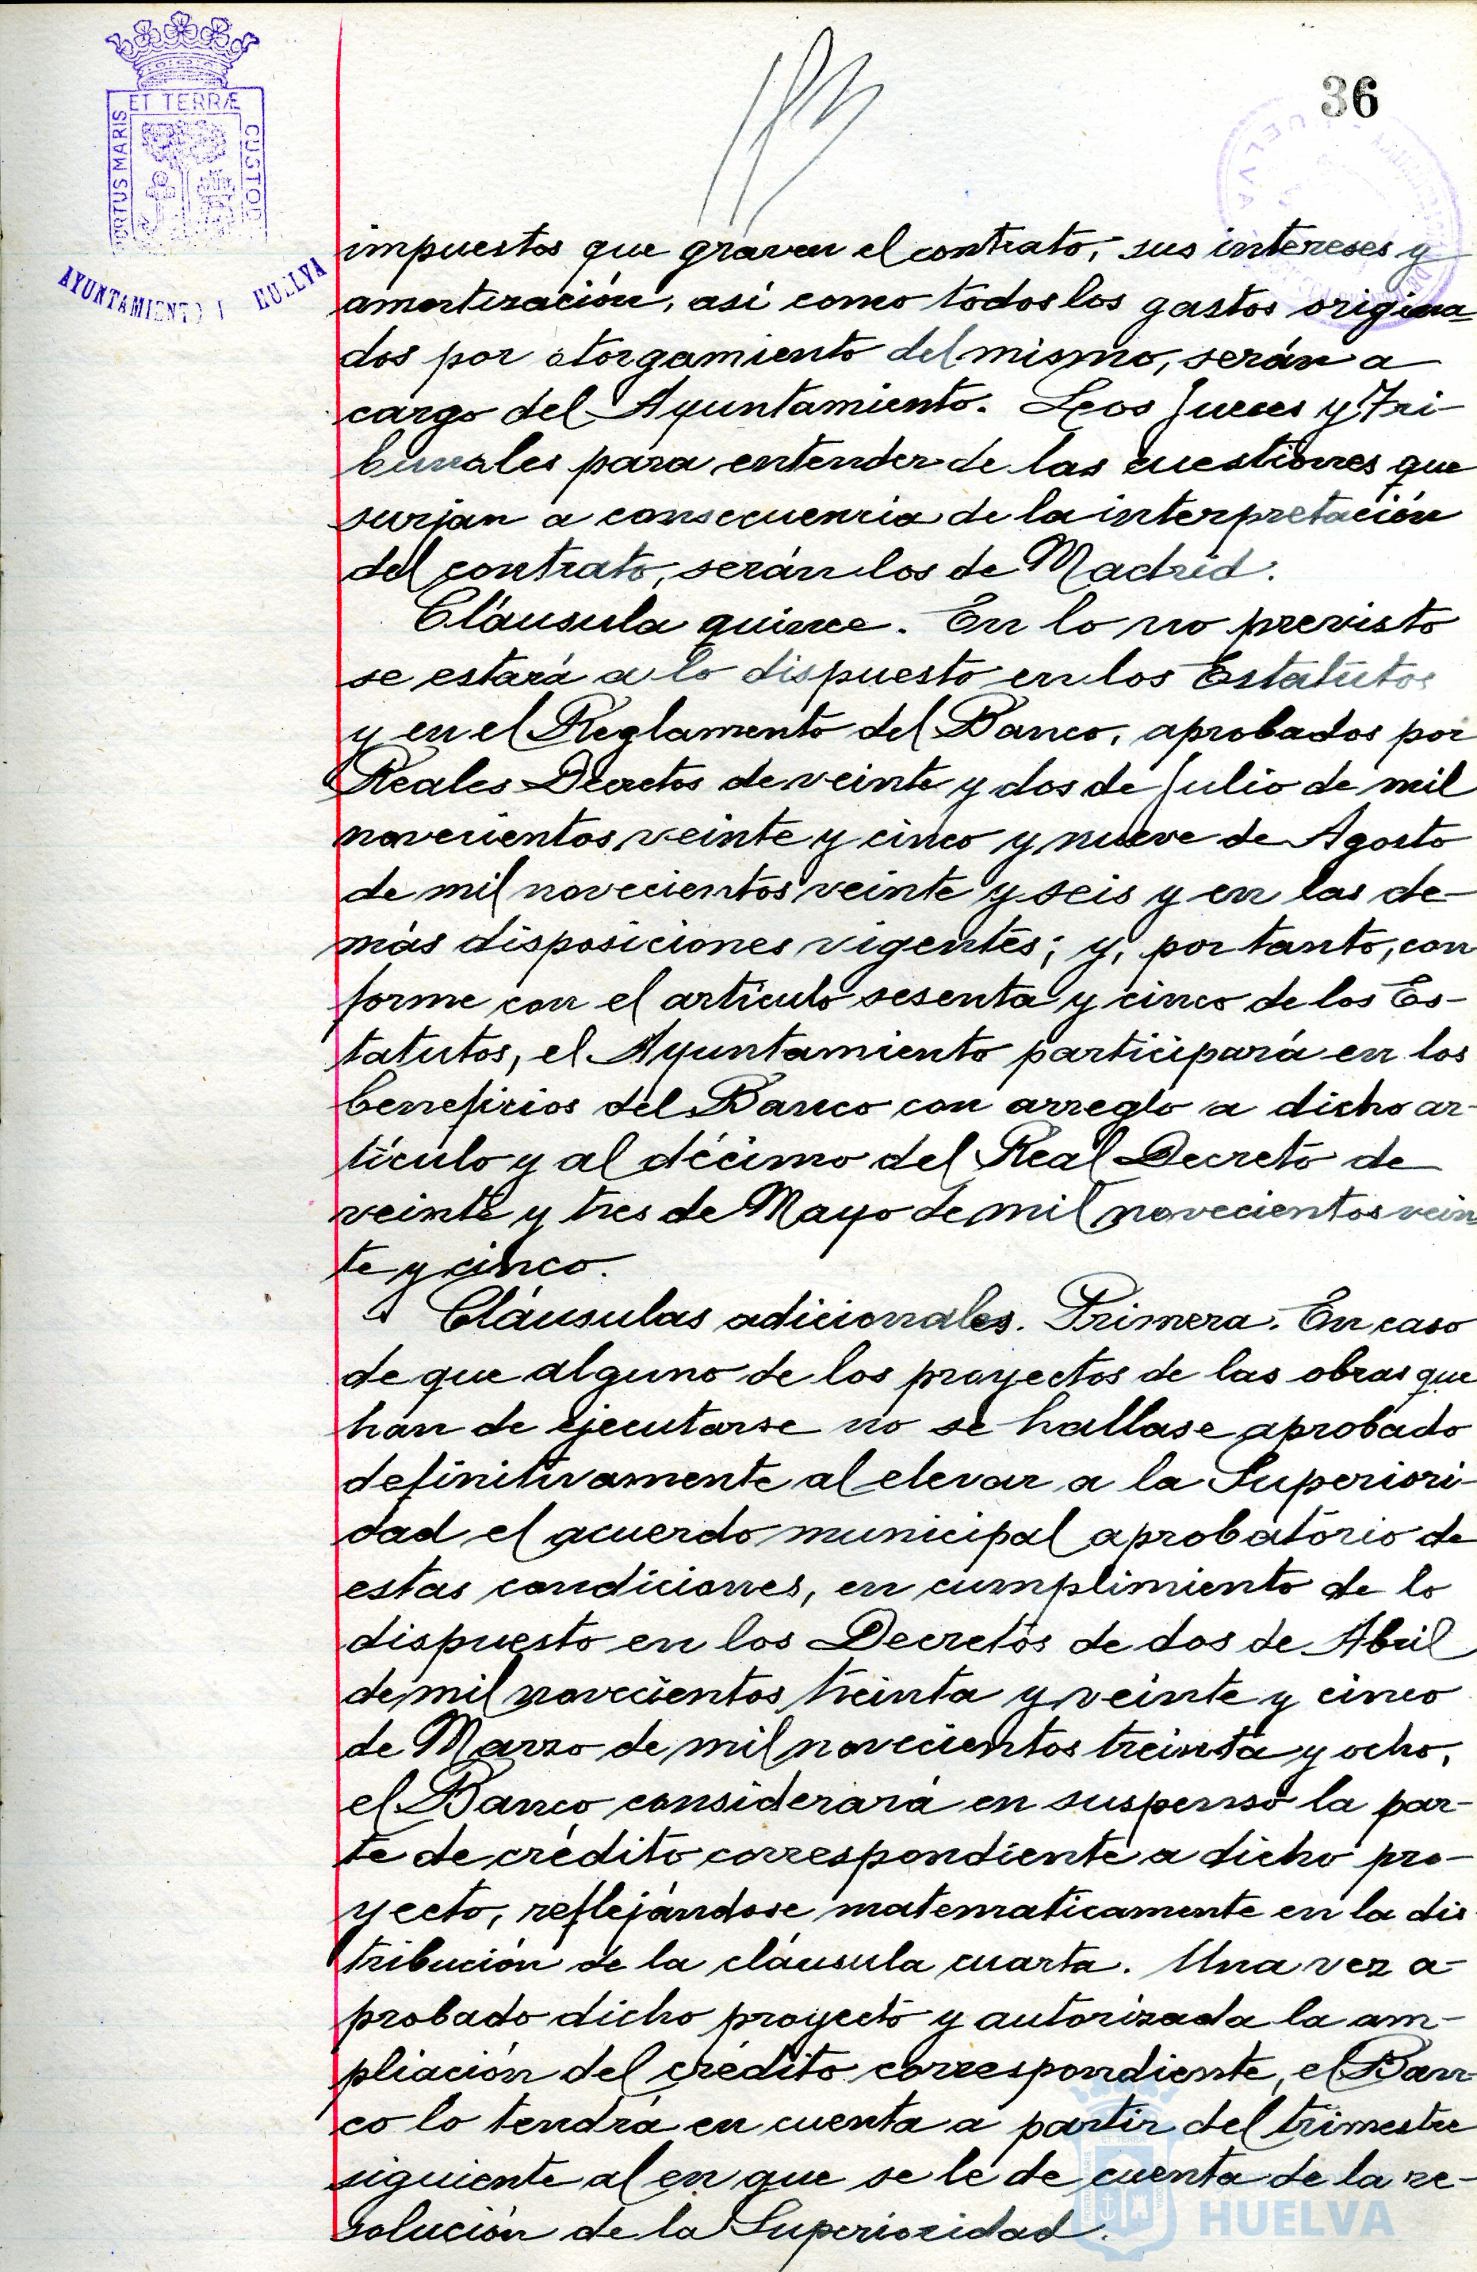 36
ET TERRÆ
PORTUS MARIS
CUSTOD
AYUNTAMIENTO HUELVA
impuestos que graven el contrato, sus intereses y
amortización, así como todos los gastos origina-
dos por otorgamiento del mismo, serán a
cargo del Ayuntamiento. Los Jueces y Tri-
bunales para entender de las cuestiones que
surjan a consecuencia de la interpretación
del contrato, serán los de Madrid.
Cláusula quince. En lo no previsto
se estará a lo dispuesto en los Estatutos
y en el Reglamento del Banco, aprobados por
Reales Decretos de veinte y dos de Julio de mil
novecientos veinte y cinco y nueve de Agosto
de mil novecientos veinte y seis y en las de-
más disposiciones vigentes; y, por tanto, con
forme con el artículo sesenta y cinco de los Es-
tatutos, el Ayuntamiento participará en los
beneficios del Banco con arreglo a dicho ar-
tículo y al décimo del Real Decreto de
veinte y tres de Mayo de mil novecientos vein
te y cinco.
Cláusulas adicionales. Primera. En caso
de que alguno de los proyectos de las obras que
han de ejecutarse no se hallase aprobado
definitivamente al elevar a la Superiori-
dad el acuerdo municipal aprobatorio de
estas condiciones, en cumplimiento de lo
dispuesto en los Decretos de dos de Abril
de mil novecientos treinta y veinte y cinco
de Marzo de mil novecientos treinta y ocho,
el Banco considerará en suspenso la par-
te de crédito correspondiente a dicho pro-
yecto, reflejándose matematicamente en la dis-
tribución de la cláusula cuarta. Una vez a-
probado dicho proyecto y autorizada la am-
pliación del crédito correspondiente, el Ban-
co lo tendrá en cuenta a partir del trimestre
siguiente al en que se le de cuenta de la re-
solución de la Superioridad.
HUELVA